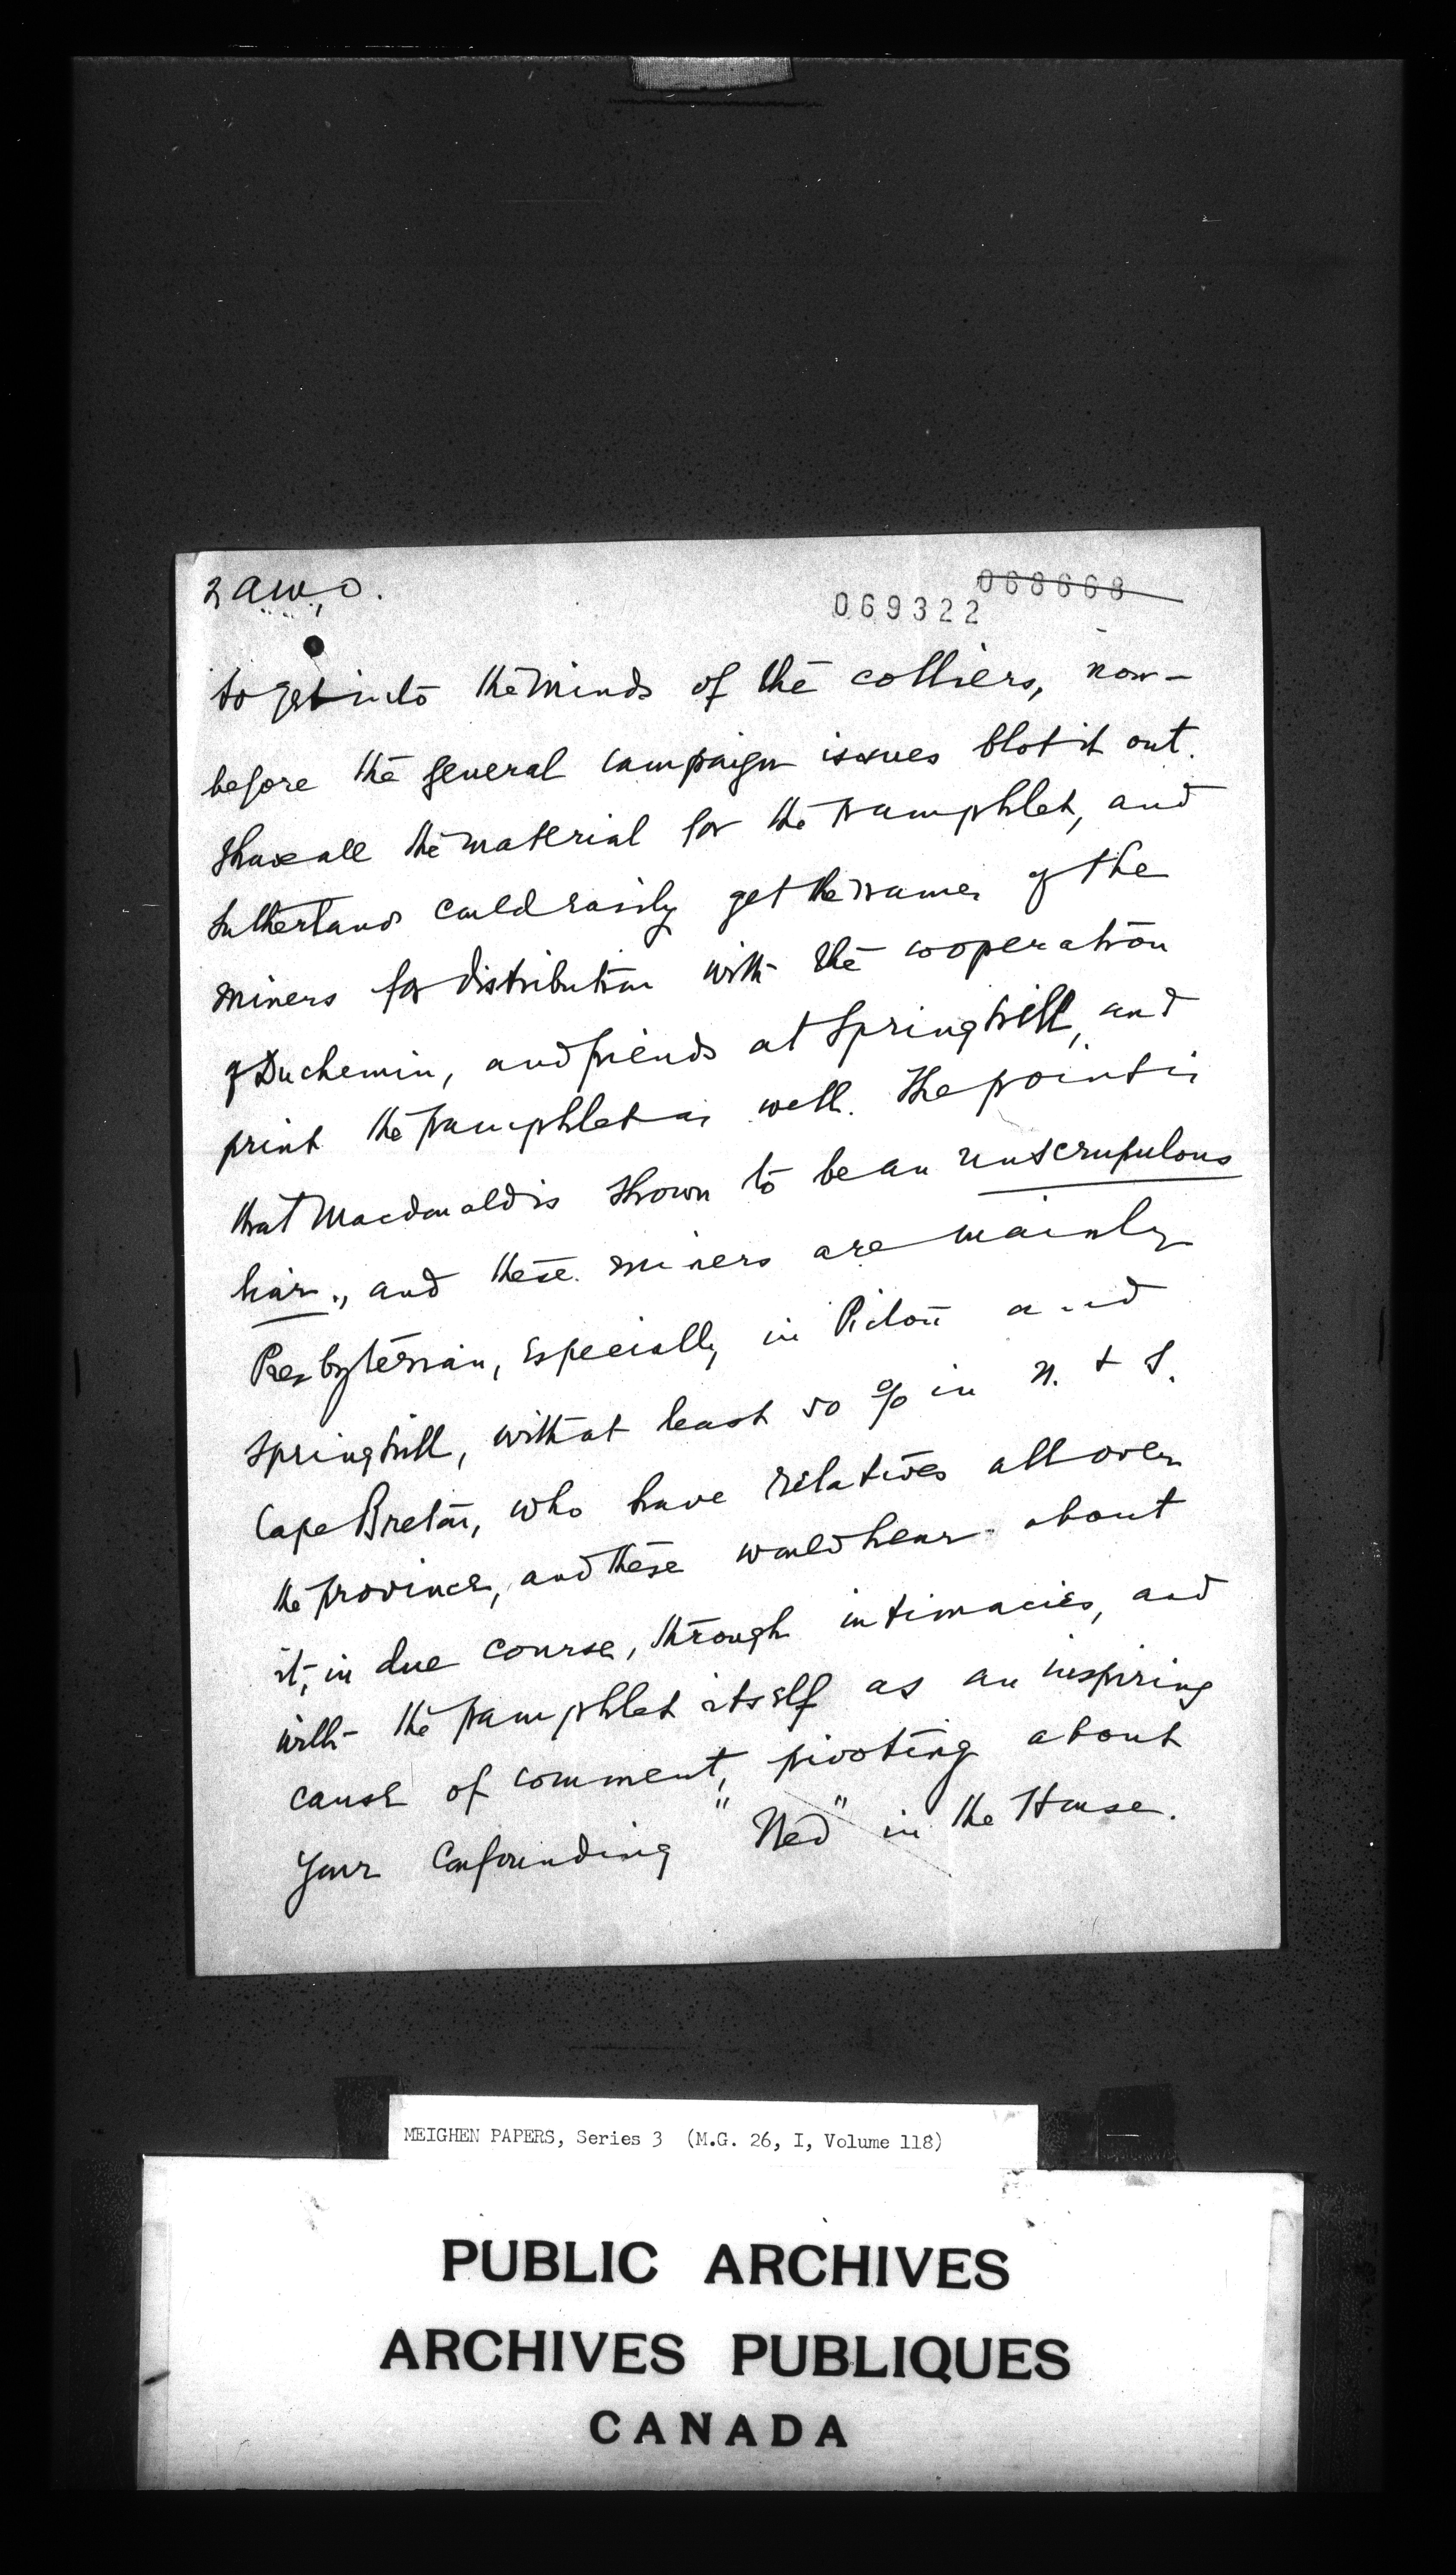 2 a w, o.
068668
069322
to get into the minds of the colliers, now -
before the general campaign issues blot it out.
I have all the material for the pamphlet, and
Sutherland could easily get the names of the
miners for distribution with the cooperation
of Duchemin, and friends at Springhill, and
print the pamphlet as well. The point is
that Macdonald is shown to be an unscrupulous
liar., and these miners are mainly
Presbyterian, especially in Pictou and
Springhill, with at least 50 % in N. & S.
Cape Breton, who have relatives all over
the province, and these would hear about
it, in due course, through intimacies, and
with the pamphlet itself as an inspiring
cause of comment, pivoting about
your confounding "Ned" in the House.
MEIGHEN PAPERS, Series 3 (M.G. 26, I, Volume 118)
PUBLIC ARCHIVES
ARCHIVES PUBLIQUES
CANADA